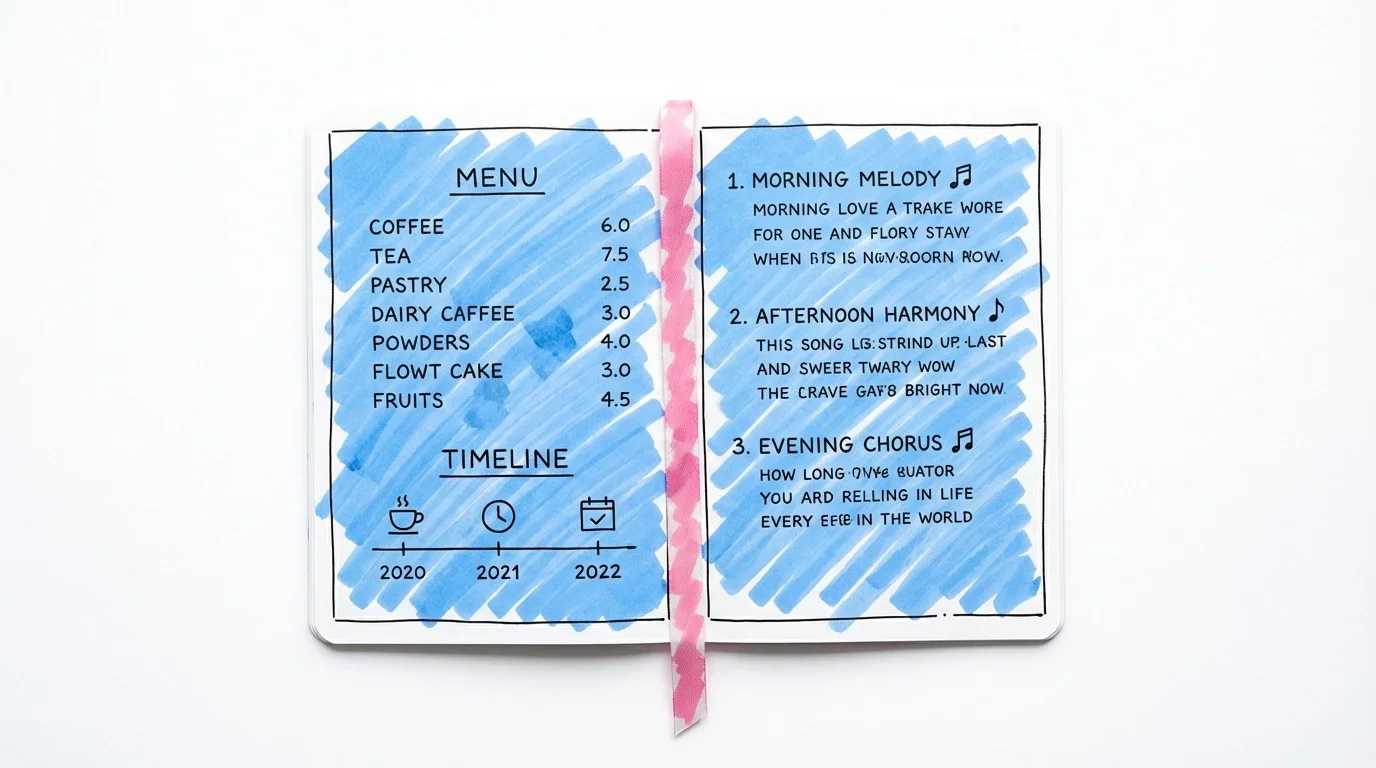 MENU
COFFEE 6.0
TEA 7.5
PASTRY 2.5
DAIRY CAFFEE 3.0
POWDERS 4.0
FLOWT CAKE 3.0
FRUITS 4.5
TIMELINE
2020 2021 2022
1. MORNING MELODY
MORNING LOVE A TRAKE WORE
FOR ONE AND FLORY STAVY
WHEN IS
2. AFTERNOON HARMONY
THIS SONG UP LAST
AND SWEER TWARY WOW
THE CRAVE BRIGHT NOW.
3. EVENING CHORUS
HOW LONG
YOU ARD RELLING IN LIFE
EVERY IN THE WORLD